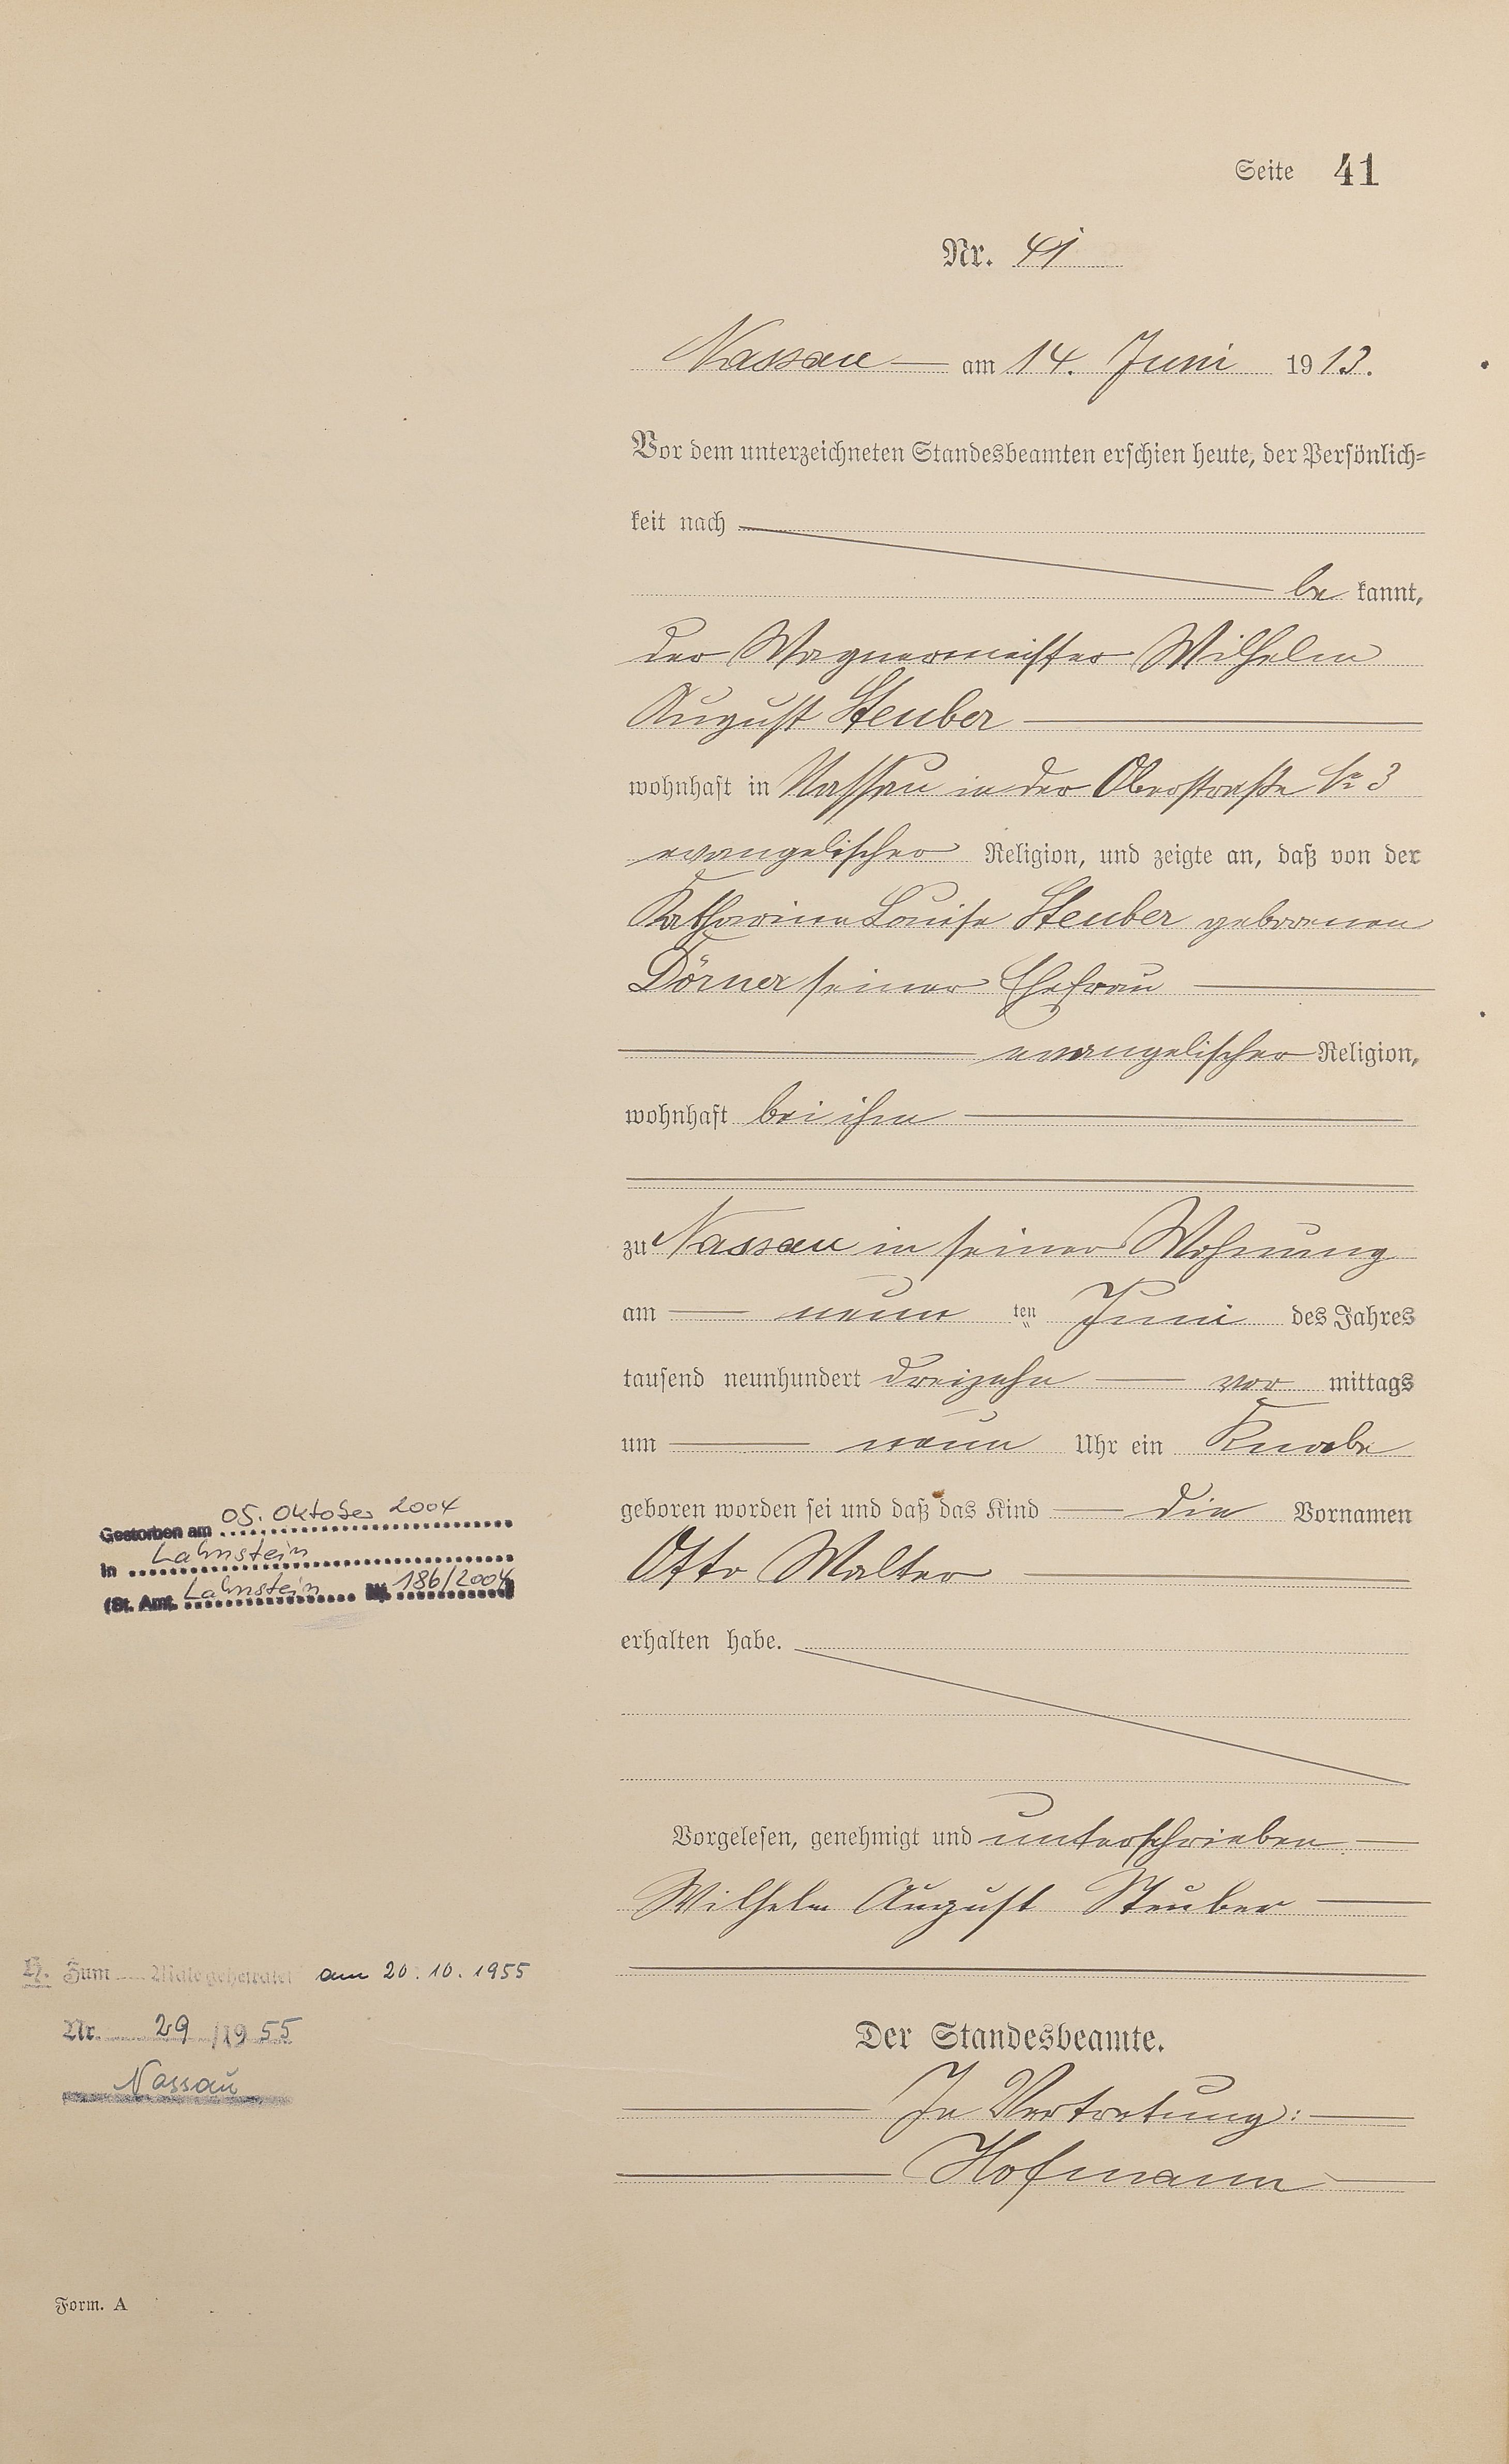 Seite 41
Nr. 41
Nassau am 14. Juni 1913.
Vor dem unterzeichneten Standesbeamten erschien heute, der Persönlich-
keit nach
be kannt,
der Wagnermeister Wilhelm
August Steuber
wohnhaft in Nassau in der Oberstraße No 3
evangelischer Religion, und zeigte an, daß von der
Katharine Louise Steuber geborenen
Dörner seiner Ehefrau
evangelischer Religion,
wohnhaft bei ihm
zu Nassau in seiner Wohnung
am neun ten Juni des Jahres
tausend neunhundert dreizehn vor mittags
um neun Uhr ein Knabe
geboren worden sei und daß das Kind die Vornamen
Otto Walter
erhalten habe.
Vorgelesen, genehmigt und unterschrieben
Wilhelm August Steuber
Der Standesbeamte.
In Vertretung:
Hofmann
Gestorben am 05. Oktober 2004
in Lahnstein
(St. Amt. Lahnstein Nr. 186/2004)
H. Zum Male geheiratet am 20.10.1955
Nr. 29/1955
Nassau
Form. A